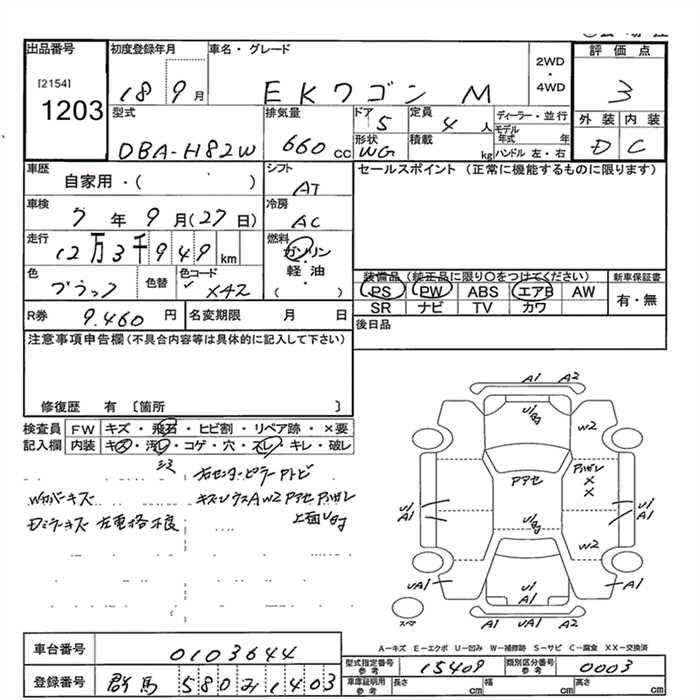 出品番号
[2154]
1203
初度登録年月
18 9月
車名・グレード
EKワゴン M
2WD
・
4WD
評価点
3
外装 内装
D C
型式
DBA-H82W
排気量
660 CC
ドア
5
定員
4 人
形状
WG
積載
kg
ディーラー・並行
モデル
年式 年
ハンドル 左・右
車歴
自家用・( )
シフト
AT
セールスポイント (正常に機能するものに限ります)
車検
7年 9月(27日)
冷房
AC
走行
12万3千949km
燃料
ガソリン
軽油
( )
色
ブラック
色替
色コード
X42
装備品 (純正品に限り○をつけてください)
PS PW ABS エアB AW
SR ナビ TV カワ
新車保証書
有・無
R券 9.460 円
名変期限 月 日
後日品
注意事項申告欄(不具合内容等は具体的に記入して下さい)
修復歴 有 〔箇所 〕
検査員
記入欄
FW キズ・飛石・ヒビ割・リペア跡・×要
内装 キズ・汚レ・コゲ・穴・スレ・キレ・破レ
右センターピラーアトビ
Wカバーキズ
Dミラーキズ 左電格不良
上面UG
A1 A2
W2
Pアセ
Pハガレ
×
×
U1
A1
U1
A1
W2
UA1
U1
A1
A1
A1 UA1 A1
スペア
A―キズ E―エクボ U―凹み W―補修跡 S―サビ C―腐食 XX―交換済
車台番号 0103644
登録番号 群馬 580み1403
型式指定番号
参考
15409
類別区分番号
参考
0003
車庫証明用
参考
長さ cm
幅 cm
高さ cm